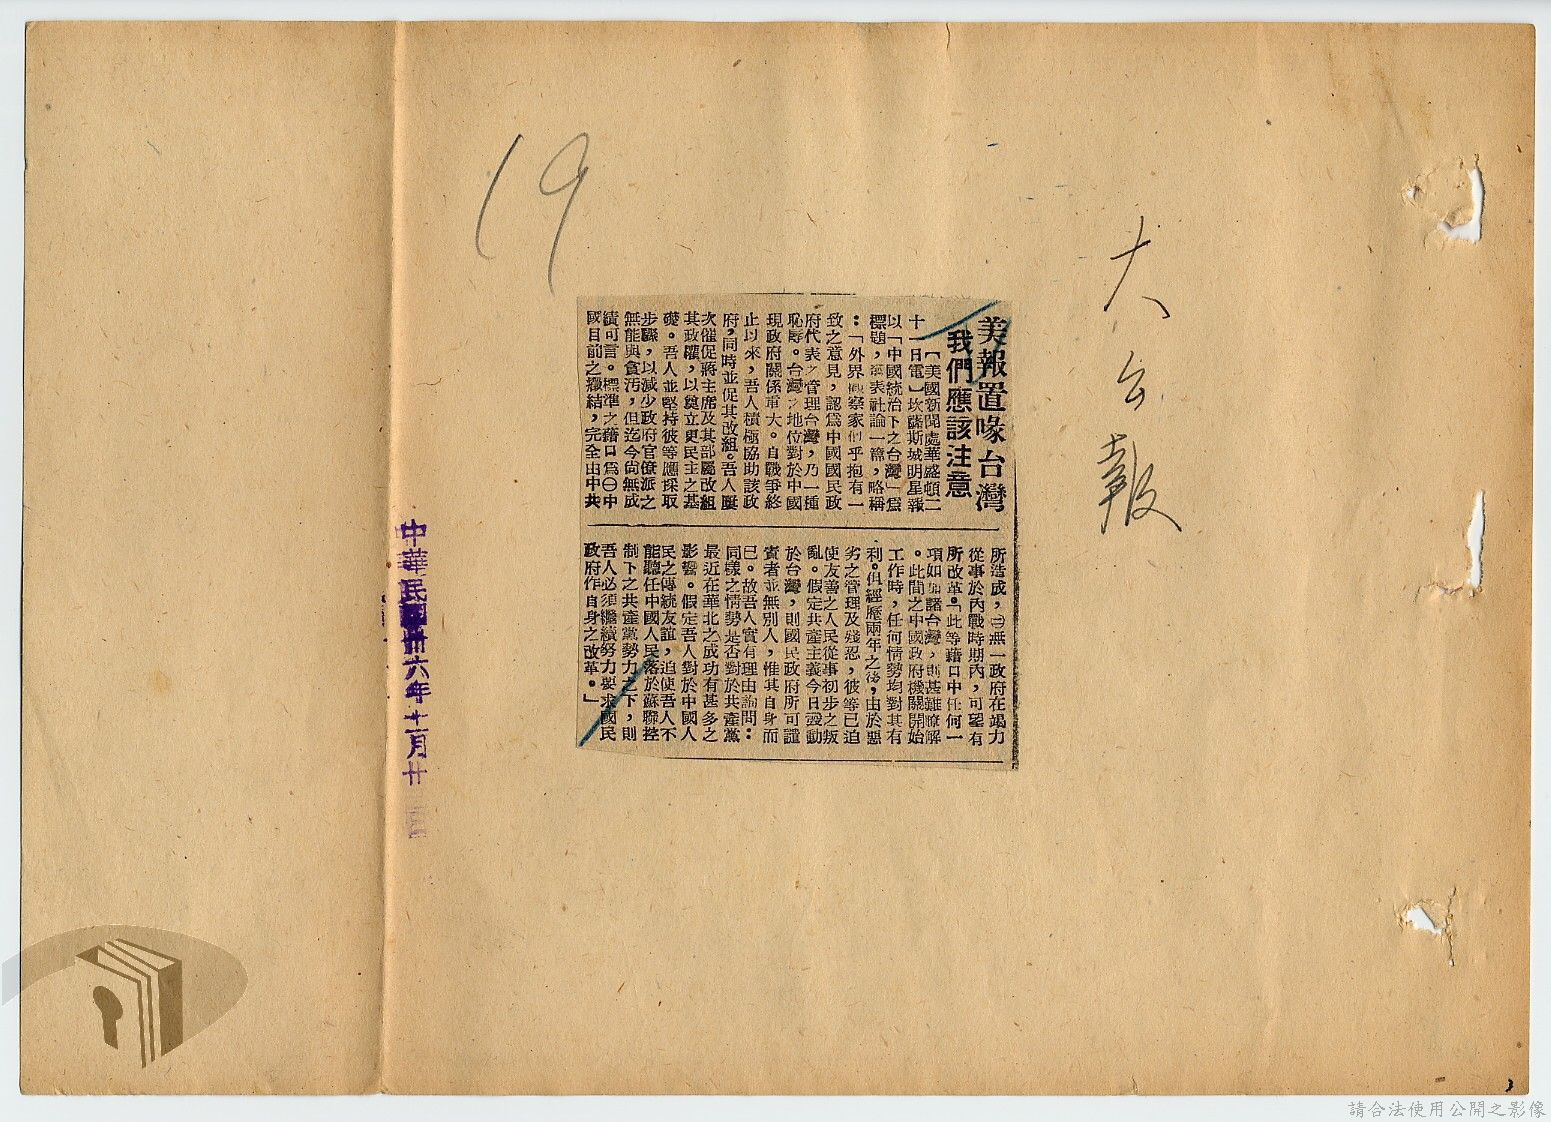 大公報
19
美報置喙台灣
我們應該注意
【美國新聞處華盛頓二
十一日電】坎薩斯城明星報
以「中國統治下之台灣」為
標題，發表社論一篇，略稱
：「外界觀察家似乎抱有一
致之意見，認為中國國民政
府代表之管理台灣，乃一種
恥辱。台灣之地位對於中國
現政府關係重大。自戰爭終
止以來，吾人積極協助該政
府，同時並促其改組。吾人屢
次催促蔣主席及其部屬改組
其政權，以奠立更民主之基
礎。吾人並堅持彼等應採取
步驟，以減少政府官僚派之
無能與貪汚，但迄今尚無成
績可言。標準之藉口為㊀中
國目前之癥結，完全由中共
所造成，㊁無一政府在竭力
從事於內戰時期內，可望有
所改革。「此等藉口中任何一
項如加諸台灣，則甚難瞭解
。此間之中國政府機關開始
工作時，任何情勢均對其有
利。但經歷兩年之後，由於惡
劣之管理及殘忍，彼等已迫
使友善之人民從事初步之叛
亂。假定共產主義今日發動
於台灣，則國民政府所可譴
責者並無別人，惟其自身而
已。故吾人實有理由詢問：
同樣之情勢是否對於共產黨
最近在華北之成功有甚多之
影響。假定吾人對於中國人
民之傳統友誼，迫使吾人不
能聽任中國人民落於蘇聯控
制下之共產黨勢力之下，則
吾人必須繼續努力要求國民
政府作自身之改革。」
中華民國卅六年十一月廿
請合法使用公開之影像